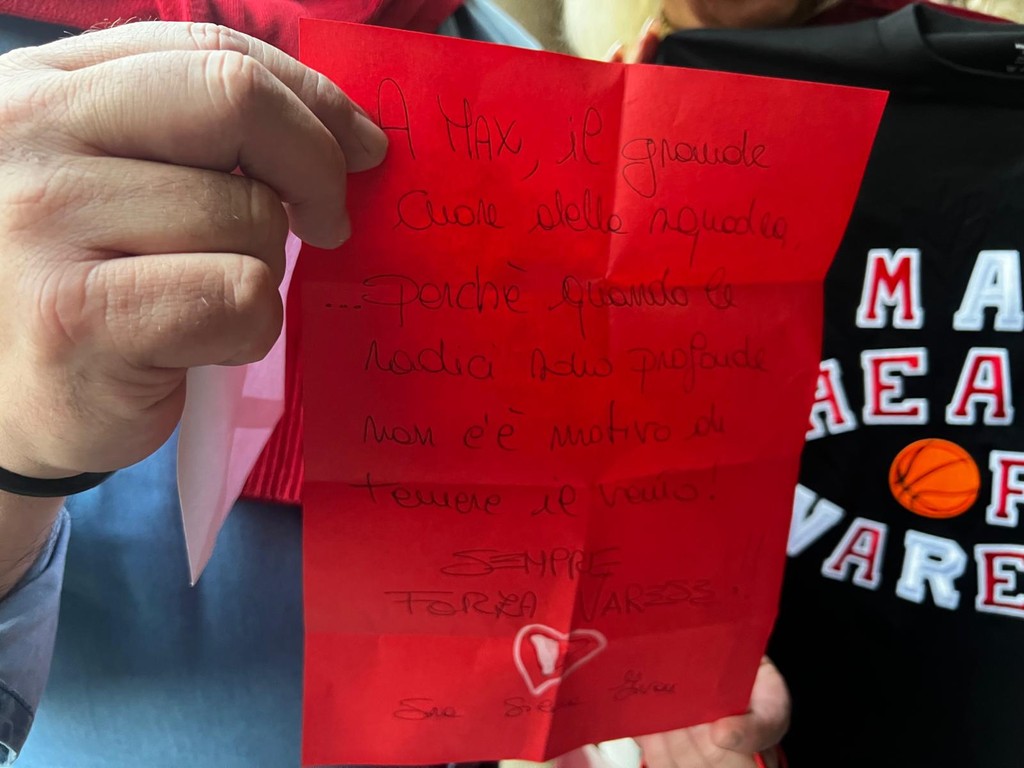 A MAX, il grande
cuore della squadra
...perchè quando le
radici sono profonde
non c'è motivo di
temere il vento!
SEMPRE
FORZA VARESE!
MA
AEA
F
VARE